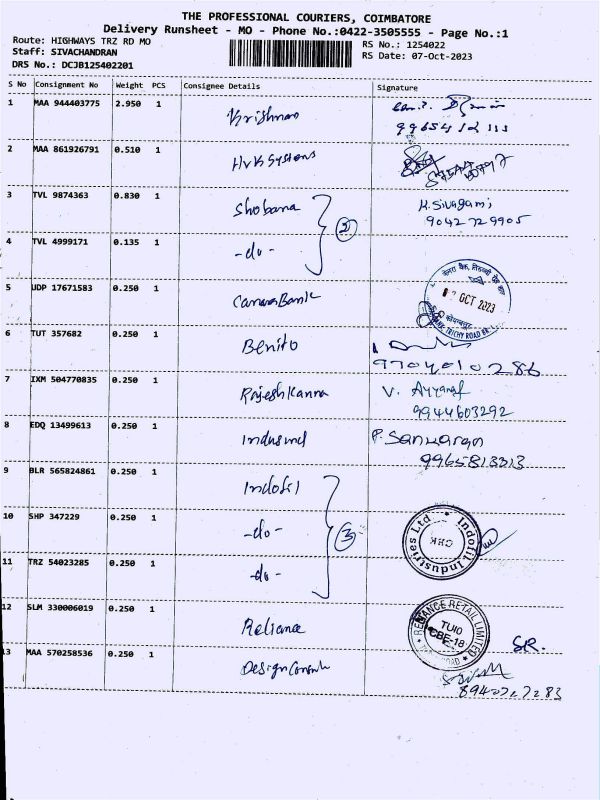 THE PROFESSIONAL COURIERS, COIMBATORE
Delivery Runsheet - MO - Phone No.:0422-3505555 - Page No.:1
Route: HIGHWAYS TRZ RD MO
RS No.: 1254022
Staff: SIVACHANDRAN
RS Date: 07-Oct-2023
DRS No.: DCJB125402201
S No Consignment No Weight PCS Consignee Details Signature
1 MAA 944403775 2.950 1 Krishnan
99654 12 111
2 MAA 861926791 0.510 1 HVK Systems
3 TVL 9874363 0.830 1 Shobana K. Sivagami
9042729905
2
4 TVL 4999171 0.135 1 -do-
5 UDP 17671583 0.250 1 Canara Bank
OCT 2023
TRICHY ROAD
6 TUT 357682 0.250 1 Benito
9704010286
7 IXM 504770835 0.250 1 Rajesh Kanna V. Ayyanar
9944603292
8 EDQ 13499613 0.250 1 Indusind P. Sankaran
9965813313
9 BLR 565824861 0.250 1 Indofil
10 SHP 347229 0.250 1 -do-
3
Indofil Industries Ltd
CBE
11 TRZ 54023285 0.250 1 -do-
12 SLM 330006019 0.250 1 Reliance
RELIANCE RETAIL LIMITED
TUIO
CBE-18
ROAD
SR.
13 MAA 570258536 0.250 1 Design Consult